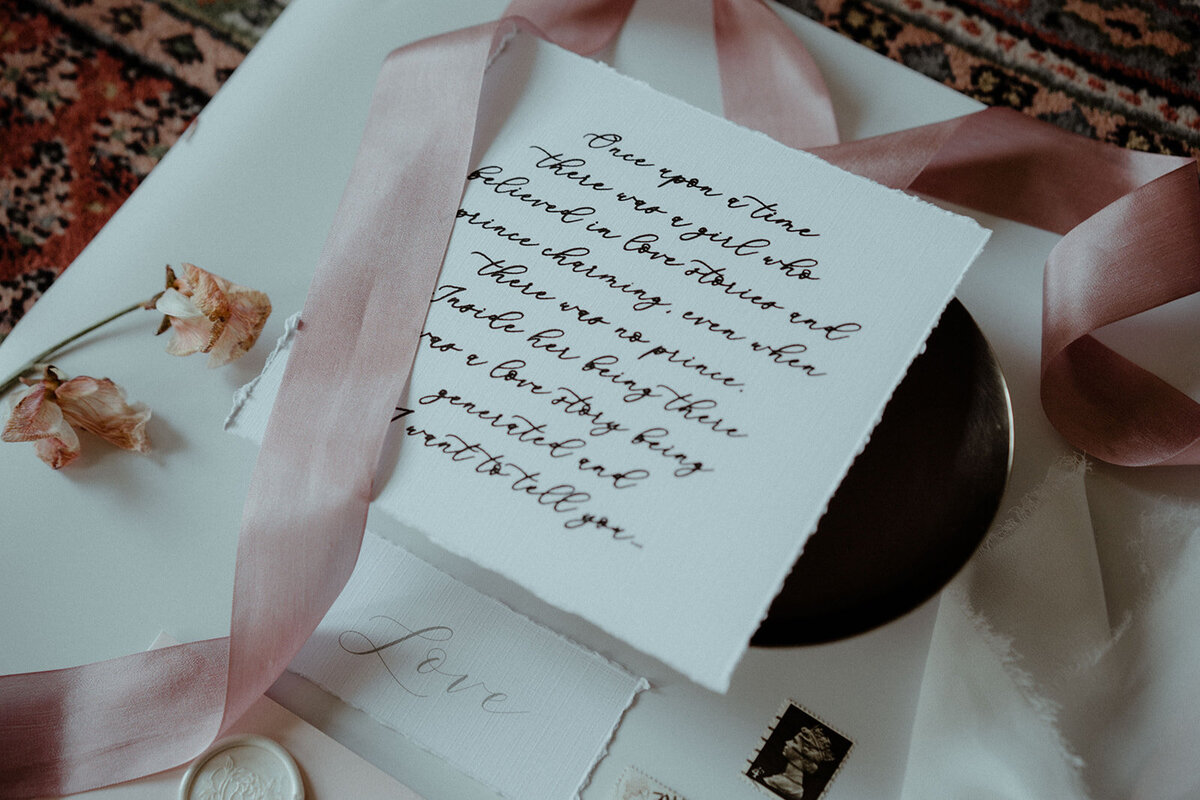 Once upon a time
there was a girl who
believed in love stories and
prince charming, even when
there was no prince.
Inside her being there
was a love story being
generated and
I want to tell you...
Love